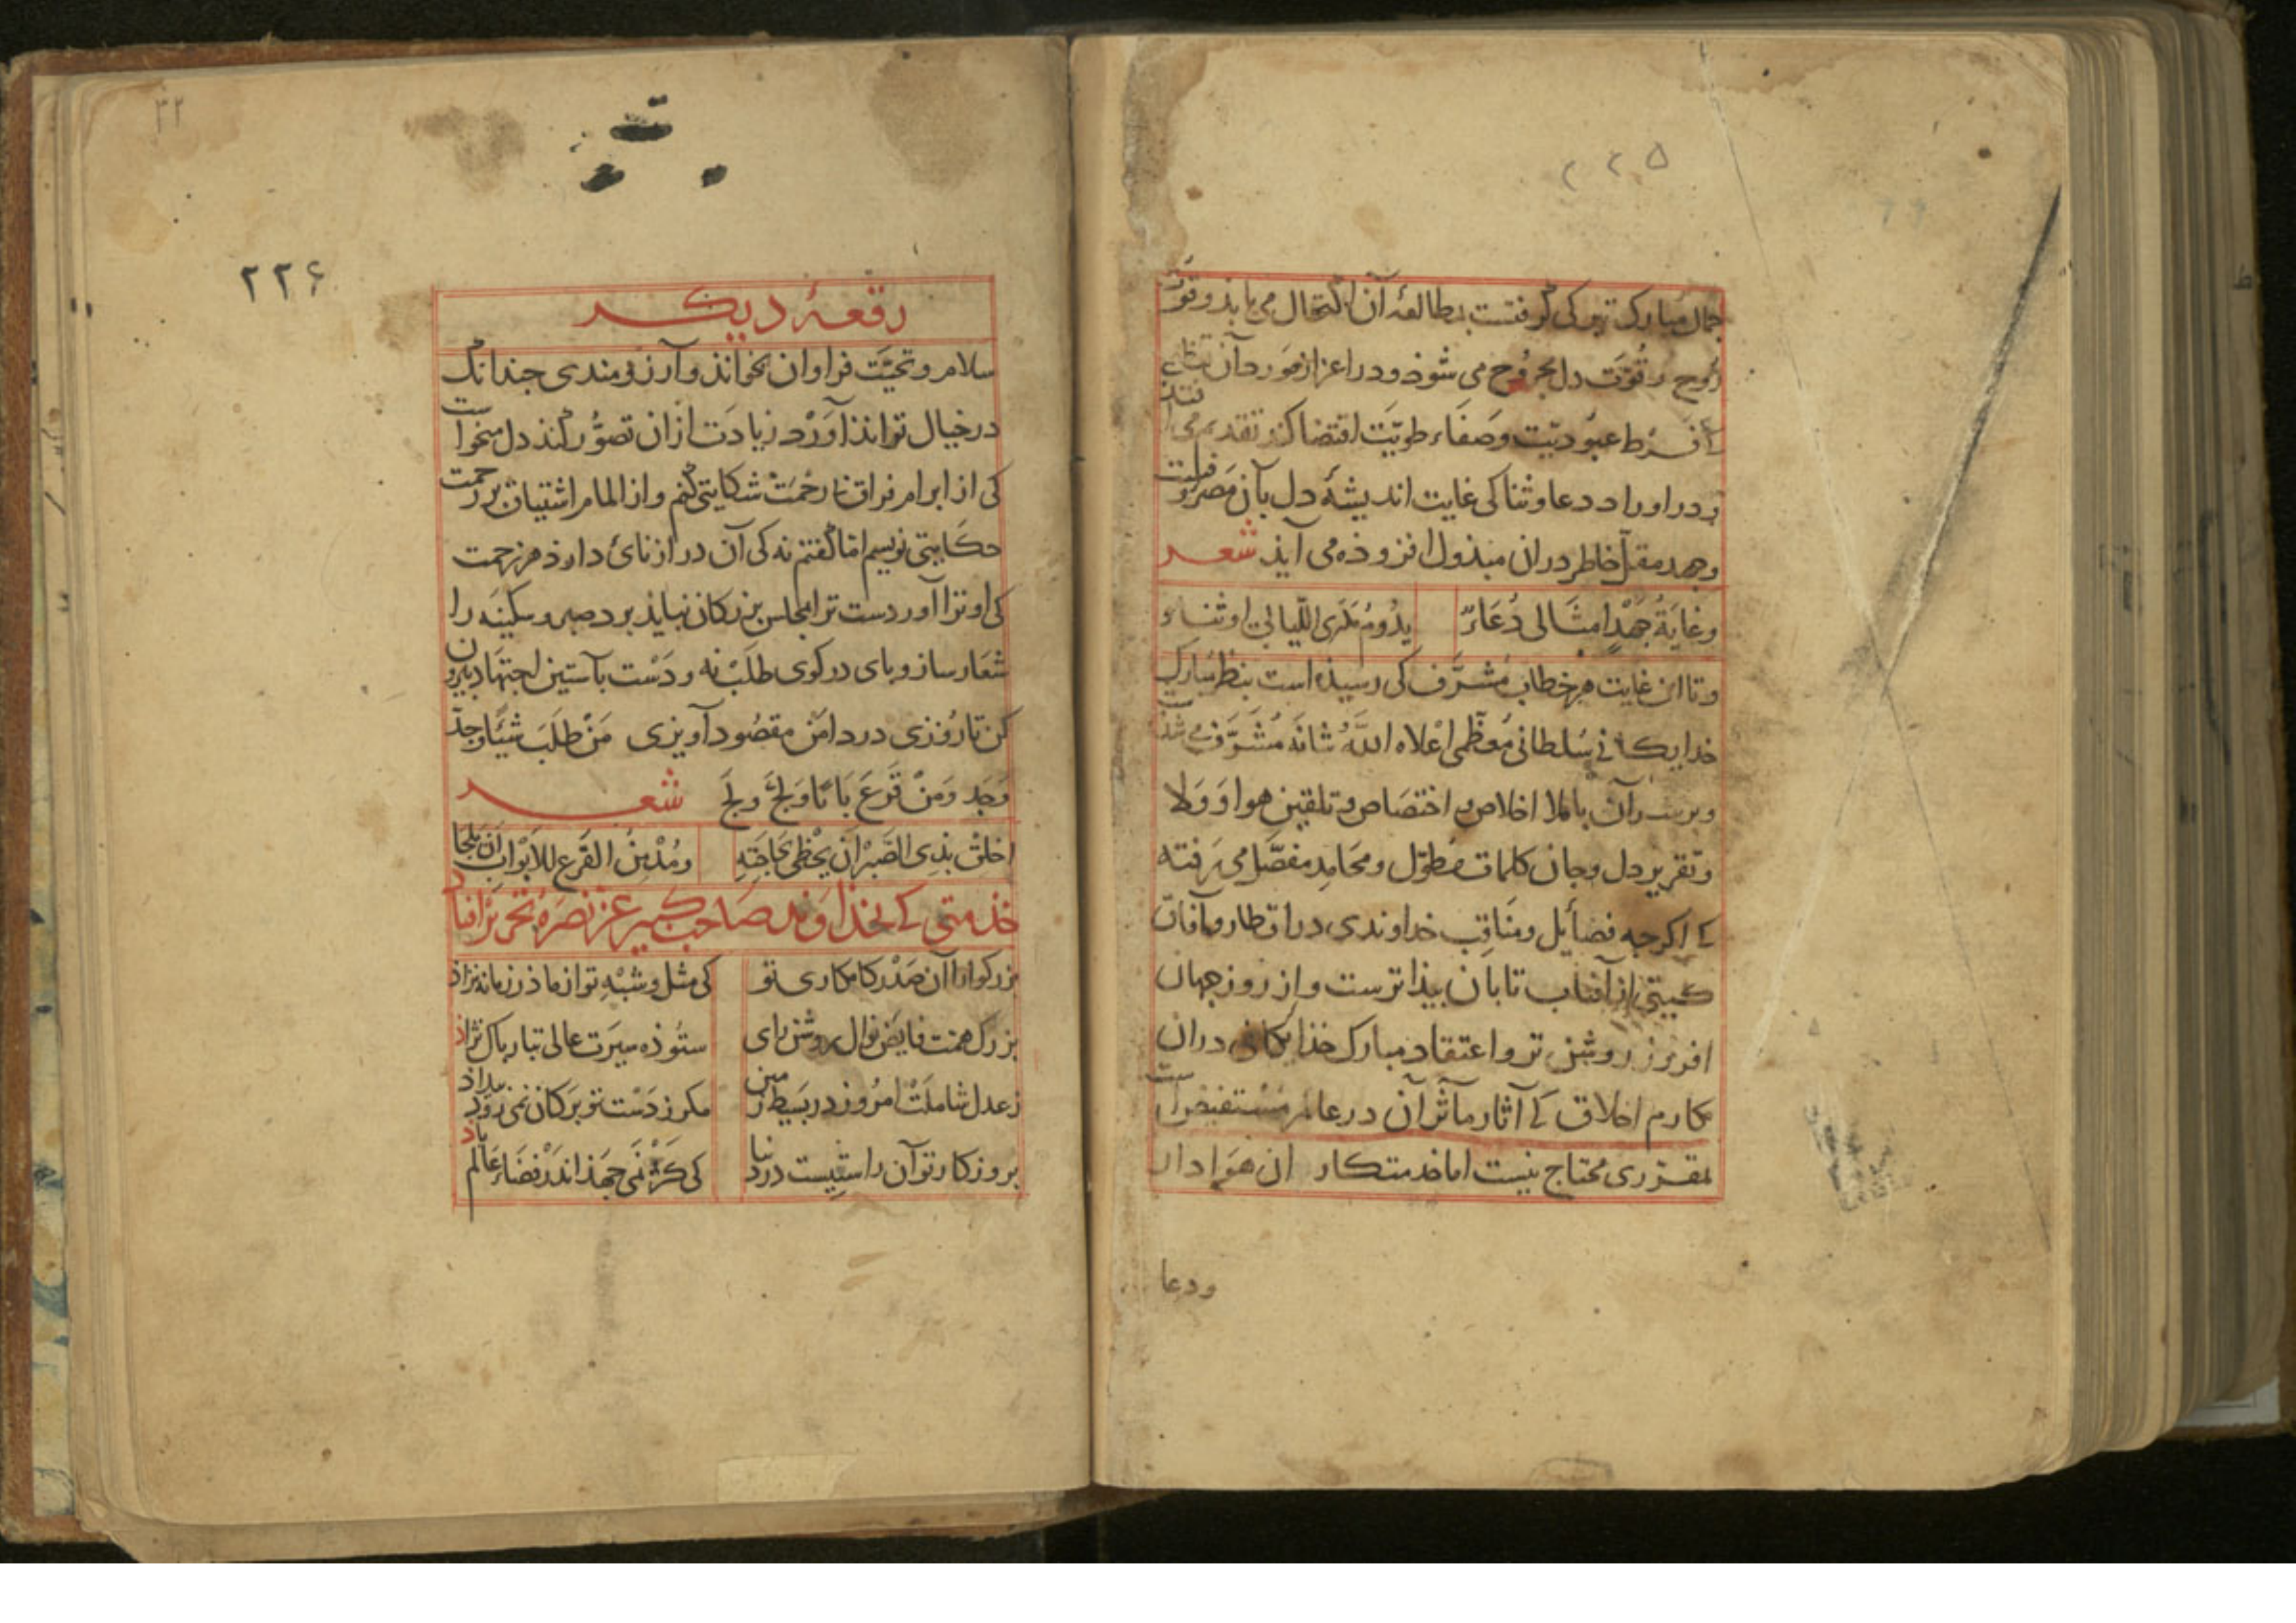 ۲۲۵
جمال مبارک تبرکی گرفتست بمطالعۀ آن اکتحال می یابذ و قوت
روح و قوت دل مجروح می شوذ و در اعزاز مورد آن
فرط عبودیت و صفاء طویت اقتضا کند تقدیم می افتد
و در اوراد دعا و ثنا کی غایت اندیشۀ دل بآن مصروفست
وجهد مقل خاطر دران مبذول افزوذه می آیذ شعر
وغایة جهد امثالی دعاء یدوم مدی اللیالی او ثناء
و تا این غایت هر خطاب مشرف کی رسیذه است بنظر مبارک
خدایکانی سلطانی معظمی اعلاه الله شانه مشرف می شذست
و بر آن باملا اخلاص و اختصاص و تلقین هوا و ولا
و تقریر دل و جان کلمات مطول و محامد مفصل می رفته
کی اکرجه فضایل و مناقب خداوندی در اقطار و آفاق
کیتی از آفتاب تابان بیذاترست و از روز جهان
افروز روشن تر و اعتقاد مبارک خذایکانی دران
مکارم اخلاق کی آثار مآثر آن در عالم مستفیض است
بمقرری محتاج نیست اما خدمتکار این هوادار
ودعا
۳۲
۲۲۶
رقعۀ دیکر
سلام و تحیت فراوان بخواند و آرزومندی جندانک
در خیال تواند آورد زیادت ازان تصور کند دل میخواست
کی از ابرام فراق نارحمت شکایتی کنم و از المام اشتیاق بر رحمت
حکایتی نویسم اما گفتم نه کی آن درازنائ دارذ هر زحمت
کی او ترا آوردست ترا بمجلس بزرکان نبایذ برد صبر و سکینه را
شعار ساز و بای در کوی طلب نه و دست بآستین اجتهاد بیرون
کن تا روزی در دامن مقصود آویزی من طلب شیئا وجد
وجد ومن قرع بابا ولج ولج شعر
اخلق بذی الصبر ان یحظی بحاجته ومدمن القرع للابواب ان یلجا
خذمتی کی بخذاوند صاحب کبیر عز نصره تحریر افتاد
بزرکوارا آن صدر کامکاری تو کی مثل و شبه تو از ماذر زمانه نزاذ
بزرک همت فایض نوال روشن رای ستوذه سیرت عالی تبار باک نژاذ
ز عدل شاملت امروز در بسیط زمین مکر ز دست تو بر کان نمی روذ بیداذ
بروزکار تو آن راستیست در دنیا کی کژ نمی جهذ اندر فضاء عالم باد